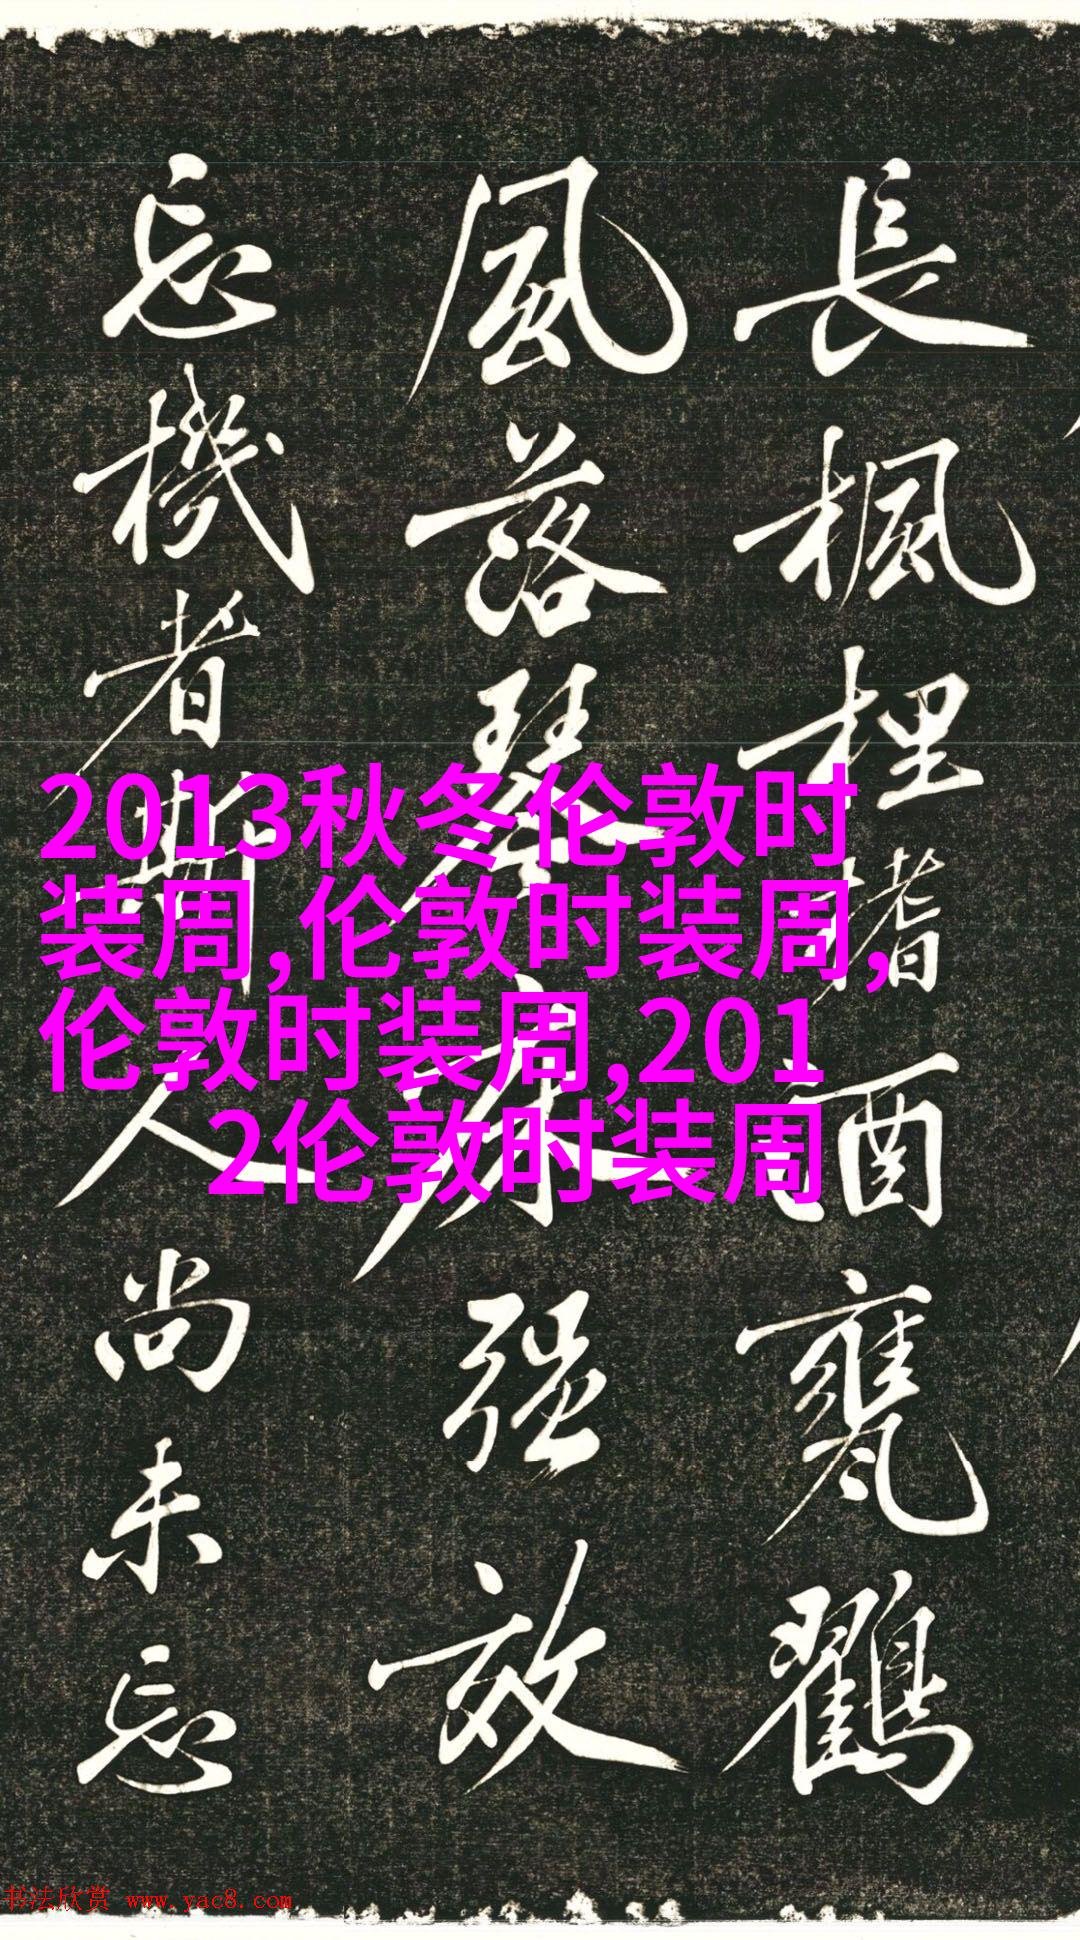 長楓柽耆酉甕鸛
風落琴床强效
忘機者斯人尚未忘
2013秋冬伦敦时
装周,伦敦时装周,
伦敦时装周,201
2伦敦时装周
书法欣赏 www.yac8.com